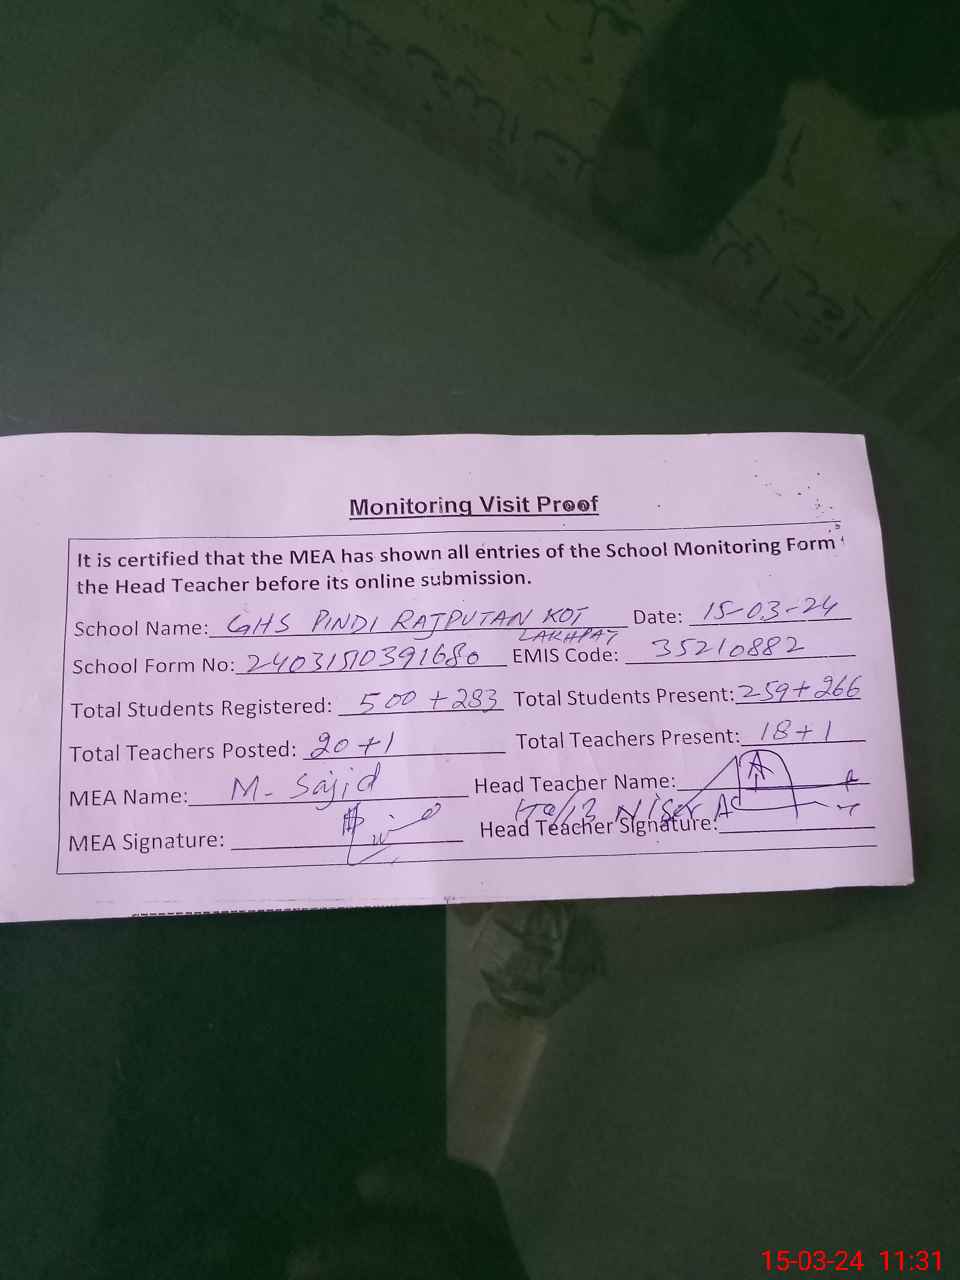 Monitoring Visit Proof
It is certified that the MEA has shown all entries of the School Monitoring Form
the Head Teacher before its online submission.
School Name: GHS PINDI RAJPUTAN KOT LAKHPAT Date: 15-03-24
School Form No: 24031510391680 EMIS Code: 35210882
Total Students Registered: 500 + 283 Total Students Present: 259 + 266
Total Teachers Posted: 20 + 1 Total Teachers Present: 18 + 1
MEA Name: M. Sajid Head Teacher Name:
MEA Signature: Head Teacher Signature:
15-03-24 11:31